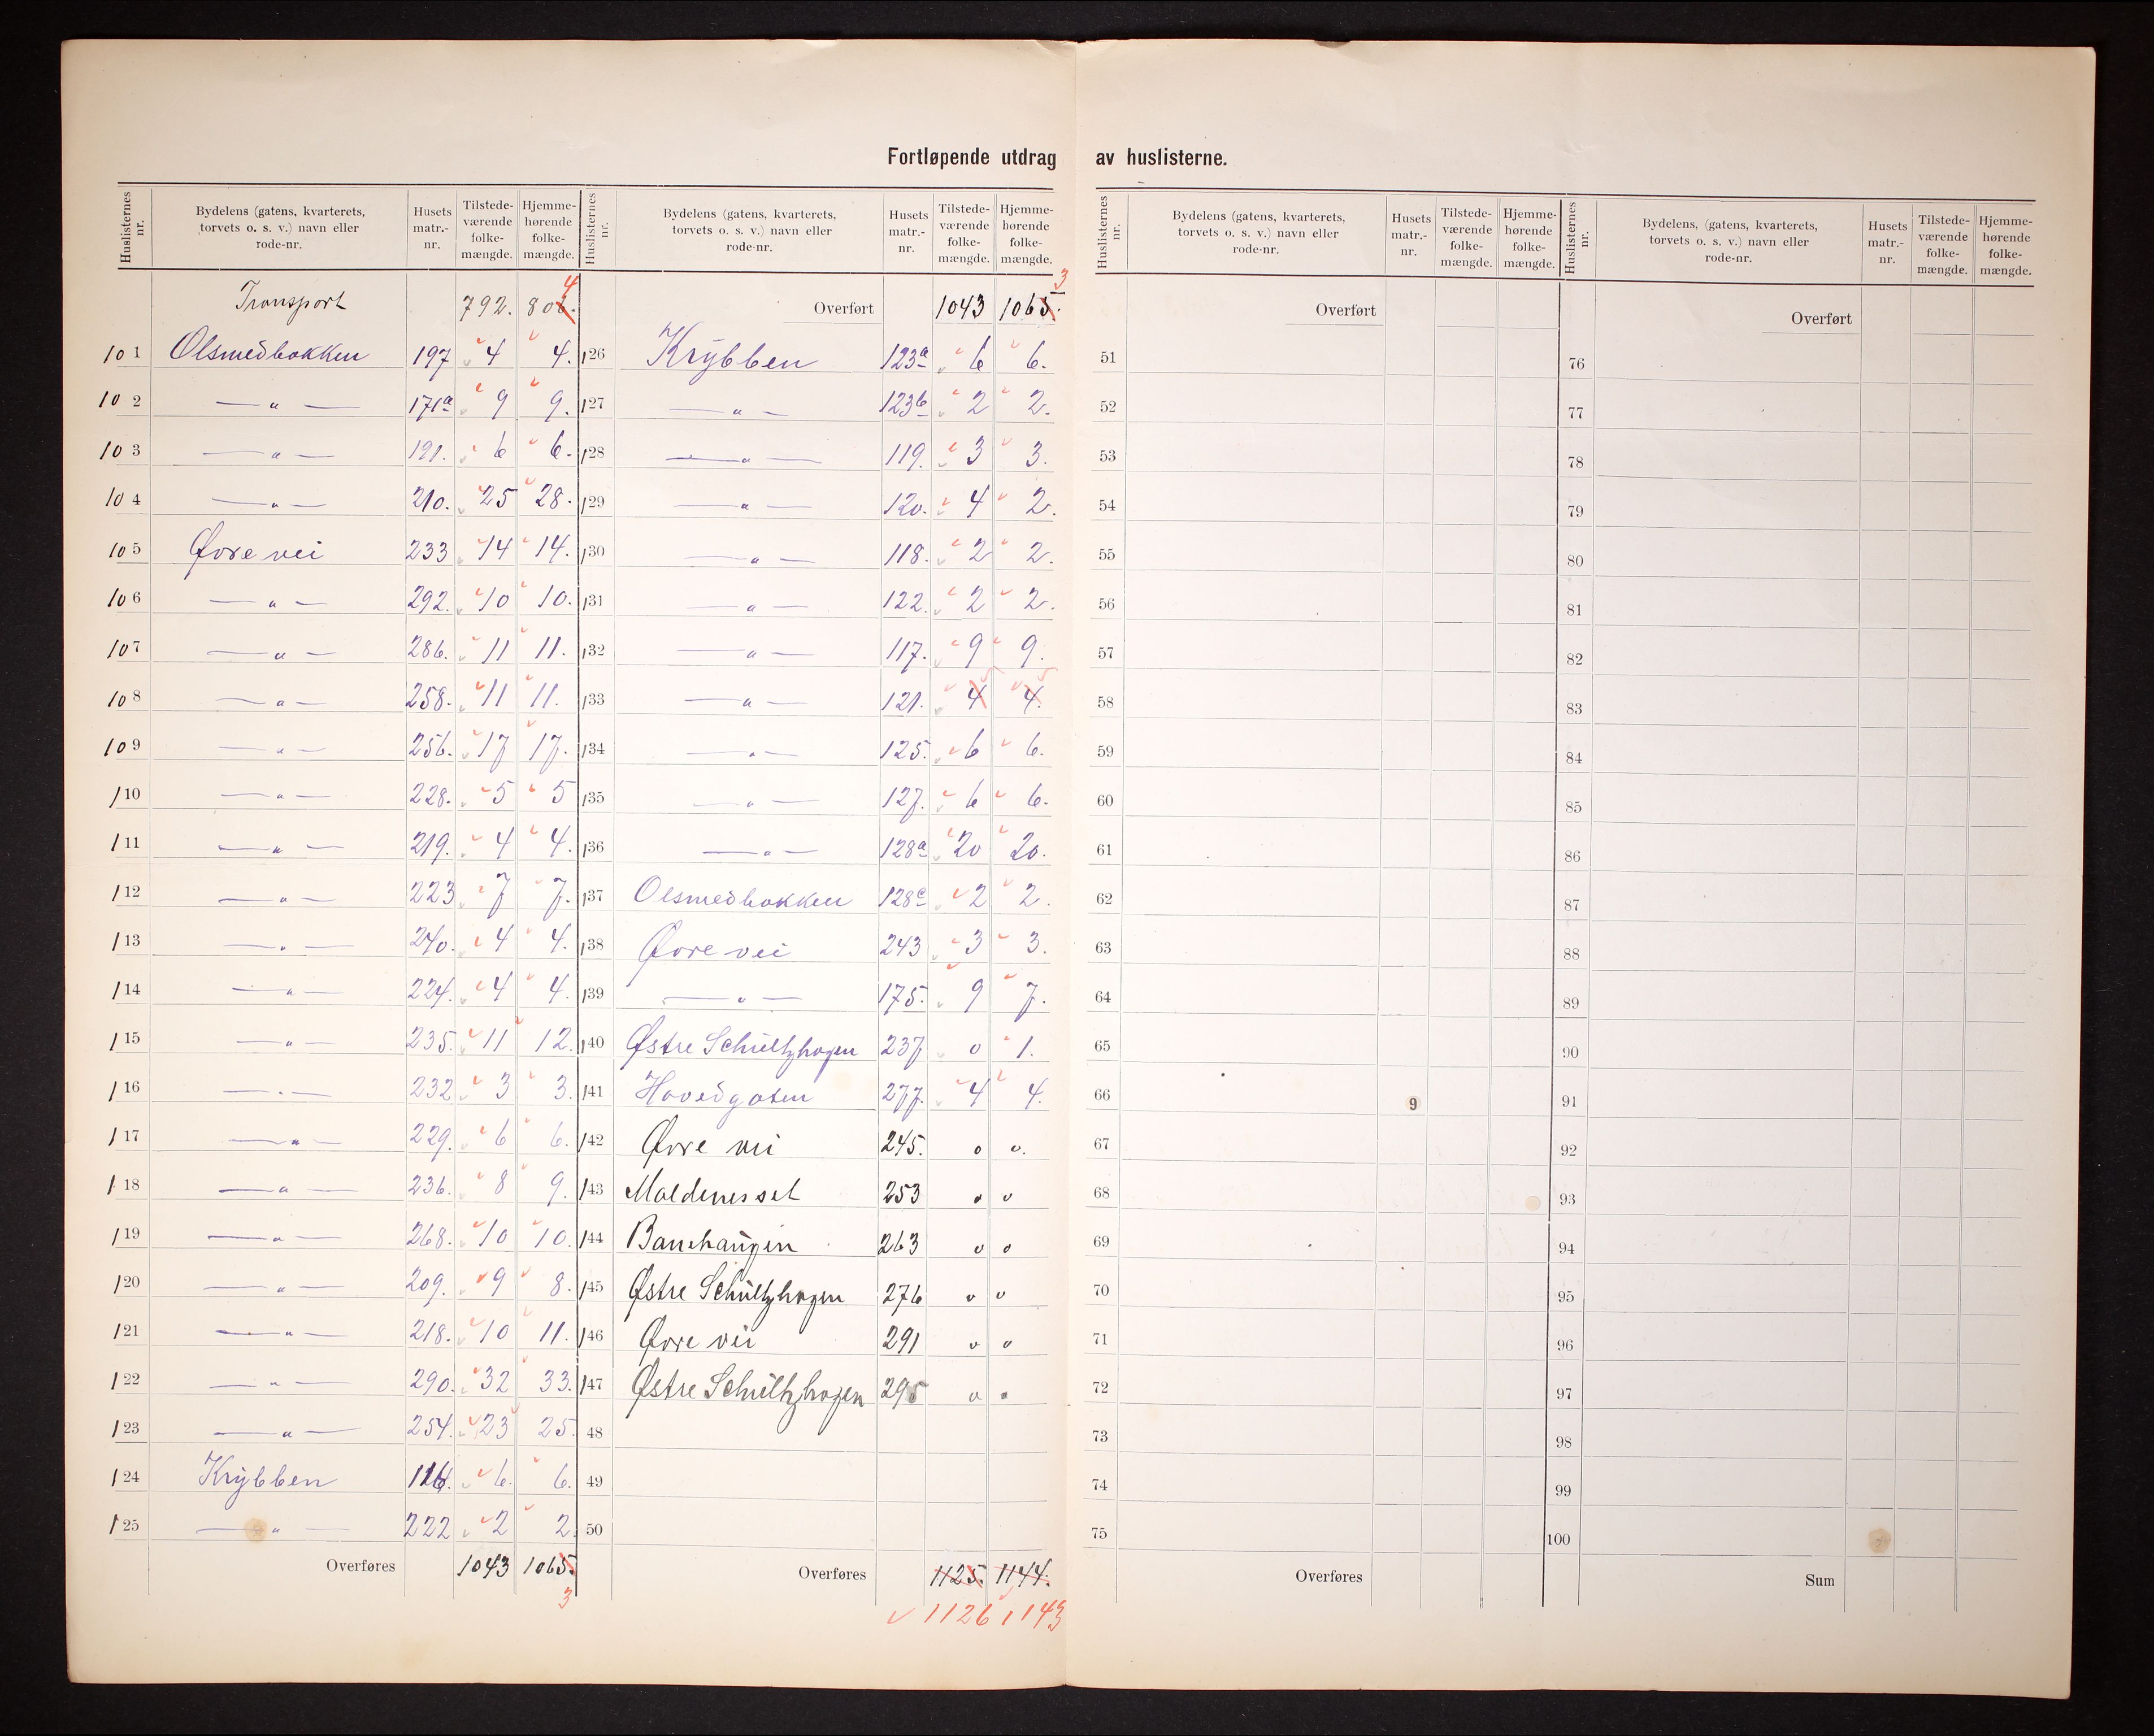 Fortløpende utdrag av huslisterne.
Huslisternes nr. | Bydelens (gatens, kvarterets, torvets o. s. v.) navn eller rode-nr. | Husets matr.-nr. | Tilstede-værende folke-mængde. | Hjemme-hørende folke-mængde.
Transport 792. 80 4
101 Olsmedbakken 197 4 4.
102 — " — 171a 9 9.
103 — " — 191. 6 6.
104 — " — 210. 25 28.
105 Øvre vei 233 14 14.
106 — " — 292. 10 10.
107 — " — 286. 11 11.
108 — " — 258. 11 11.
109 — " — 256. 17 17.
110 — " — 228. 5 5
111 — " — 219. 4 4.
112 — " — 223 7 7.
113 — " — 240. 4 4.
114 — " — 224. 4 4.
115 — " — 235. 11 12.
116 — " — 232 3 3.
117 — " — 229. 6 6.
118 — " — 236. 8 9.
119 — " — 268. 10 10.
120 — " — 209. 9 8.
121 — " — 218. 10 11.
122 — " — 290. 32 33.
123 — " — 254. 23 25.
124 Krybben 116. 6. 6.
125 — " — 222 2 2.
Overføres 1043 1065. 3
Huslisternes nr. | Bydelens (gatens, kvarterets, torvets o. s. v.) navn eller rode-nr. | Husets matr.-nr. | Tilstede-værende folke-mængde. | Hjemme-hørende folke-mængde.
Overført 1043 1065. 3
126 Krybben 123a 6 6.
127 — " — 123b 2 2.
128 — " — 119. 3 3.
129 — " — 120. 4 2.
130 — " — 118. 2 2.
131 — " — 122. 2 2.
132 — " — 117. 9 9.
133 — " — 121. 4 5 4. 5
134 — " — 125. 6 6.
135 — " — 127. 6 6.
136 — " — 128a 20 20.
137 Olsmedbakken 128c 2 2.
138 Øvre vei 243 3 3.
139 — " — 175. 9 7.
140 Østre Schultzhagen 237 0 1.
141 Hovedgaten 277. 4 4.
142 Øvre vei 245. 0 0.
143 Maldenesset 253 0 0
144 Banehaugen 263 0 0
145 Østre Schultzhagen 276 0 0
146 Øvre vei 291 0 0
147 Østre Schultzhagen 295 0 0
48
49
50
Overføres 1125. 1144.
1126 1143
Huslisternes nr. | Bydelens (gatens, kvarterets, torvets o. s. v.) navn eller rode-nr. | Husets matr.-nr. | Tilstede-værende folke-mængde. | Hjemme-hørende folke-mængde.
Overført
51
52
53
54
55
56
57
58
59
60
61
62
63
64
65
66 9
67
68
69
70
71
72
73
74
75
Overføres
Huslisternes nr. | Bydelens, (gatens, kvarterets, torvets o. s. v.) navn eller rode-nr. | Husets matr.-nr. | Tilstede-værende folke-mængde. | Hjemme-hørende folke-mængde.
Overført
76
77
78
79
80
81
82
83
84
85
86
87
88
89
90
91
92
93
94
95
96
97
98
99
100
Sum